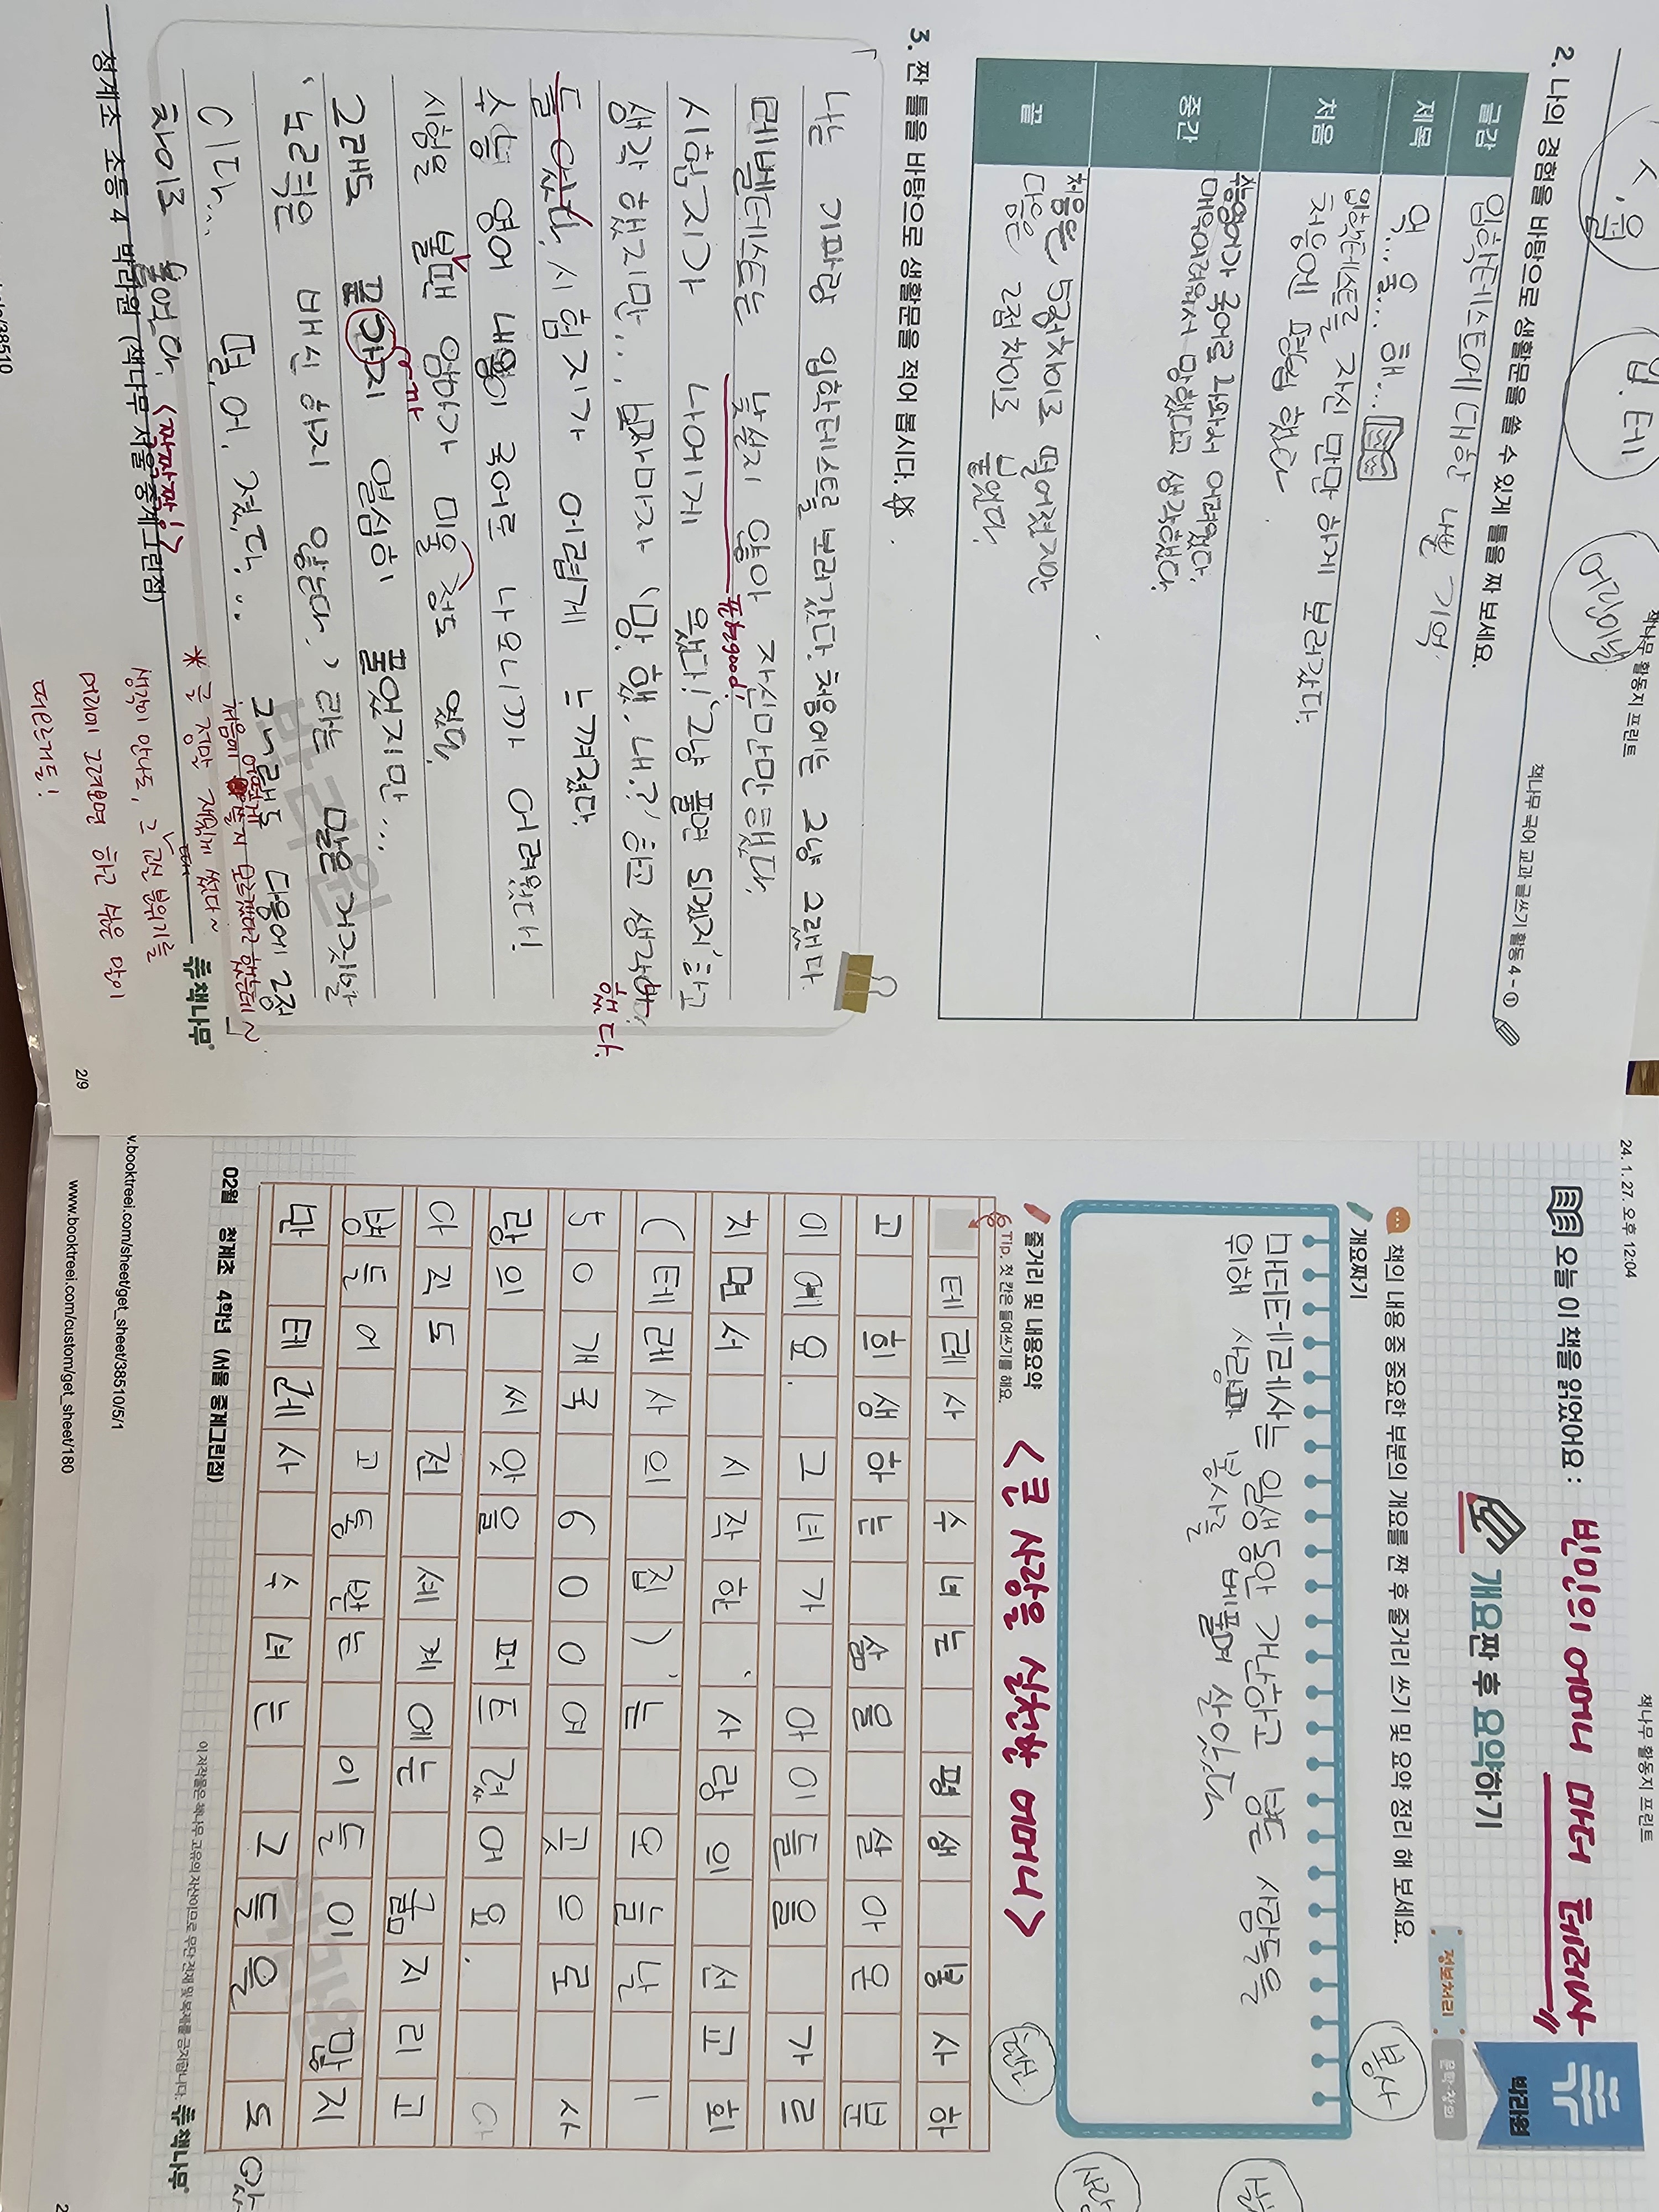 책나무 활동지 프린트
책나무 국어 교과 글쓰기 활동 4 - ①
어린이날
2. 나의 경험을 바탕으로 생활문을 쓸 수 있게 틀을 짜 보세요.
글감 입학테스트에 대한 나쁜 기억
제목 억... 울... 해...
처음 입학테스트를 자신 만만 하게 보러갔다.
처음에 덤덤 했다
중간 수능영어가 국어로 나와서 어려웠다.
매우 어려워서 망했다고 생각했다.
끝 처음은 5점차이로 떨어졌지만
다음은 2점 차이로 붙었다.
3. 짠 틀을 바탕으로 생활문을 적어 봅시다.
나는 기파랑 입학테스트를 보러갔다. 처음에는 그냥 그랬다.
레벨테스트는 낯설지 않아 자신만만했다.
표현good!
시험지가 나에게 왔다! '그냥 풀면 되겠지'라고
생각 했지만... 보자마자 '망.했.네.?' 라고 생각
했다.
들었다. 시험지가 어렵게 느껴졌다.
수능 영어 내용이 국어로 나오니까 어려웠다!
시험을 볼때 엄마가 미울 정도 였다.
그래도 끝까지 열심히 풀었지만...
까
'노력은 배신하지 않는다.' 라는 말은 거짓말
이다... 떨.어.졌.다... 그래도 다음에 2점
차이로 붙었다. <짝짝짝!>
처음에 어떻게 쓸지 모르겠다고 했는데~
* 글 정말 재밌게 썼다~
생각이 안나도, 그때 그 분위기를
머리에 그려보면 하고 싶은 말이
떠오르거든!
청계초 초등 4 박리원 (책나무 서울 중계그린점)
책나무
박리원
2/9
24. 1. 27. 오후 12:04
책나무 활동지 프린트
오늘 이 책을 읽었어요 : 빈민의 어머니 마더 테레사
박리원
개요짠 후 요약하기
정보처리
문학 창의
책의 내용 중 중요한 부분의 개요를 짠 후 줄거리 쓰기 및 요약 정리 해 보세요.
개요짜기
봉사
마더테레사는 일생동안 가난하고 병든 사람들을
위해 사랑과 봉사를 베풀며 살았다
줄거리 및 내용요약 <큰 사랑을 실천한 어머니>
Tip. 첫 칸은 들여쓰기를 해요.
테레사 수녀는 평생 봉사하
고 희생하는 삶을 살아온 분
이에요. 그녀가 아이들을 가르
치면서 시작한 '사랑의 선교회
(테레사의 집)'는 오늘날 1
50개국 600여 곳으로 사
랑의 씨앗을 퍼트렸어요. 아
직도 전 세계에는 굶주리고
병들어 고통받는 이들이 많지
만 테레사 수녀는 그들을 도
02월 청계초 4학년 (서울 중계그린점)
이 저작물은 책나무 고유의 자산이므로 무단 전재 및 복제를 금지합니다. 책나무
www.booktreei.com/custom/get_sheet/180
v.booktreei.com/sheet/get_sheet/38510/5/1